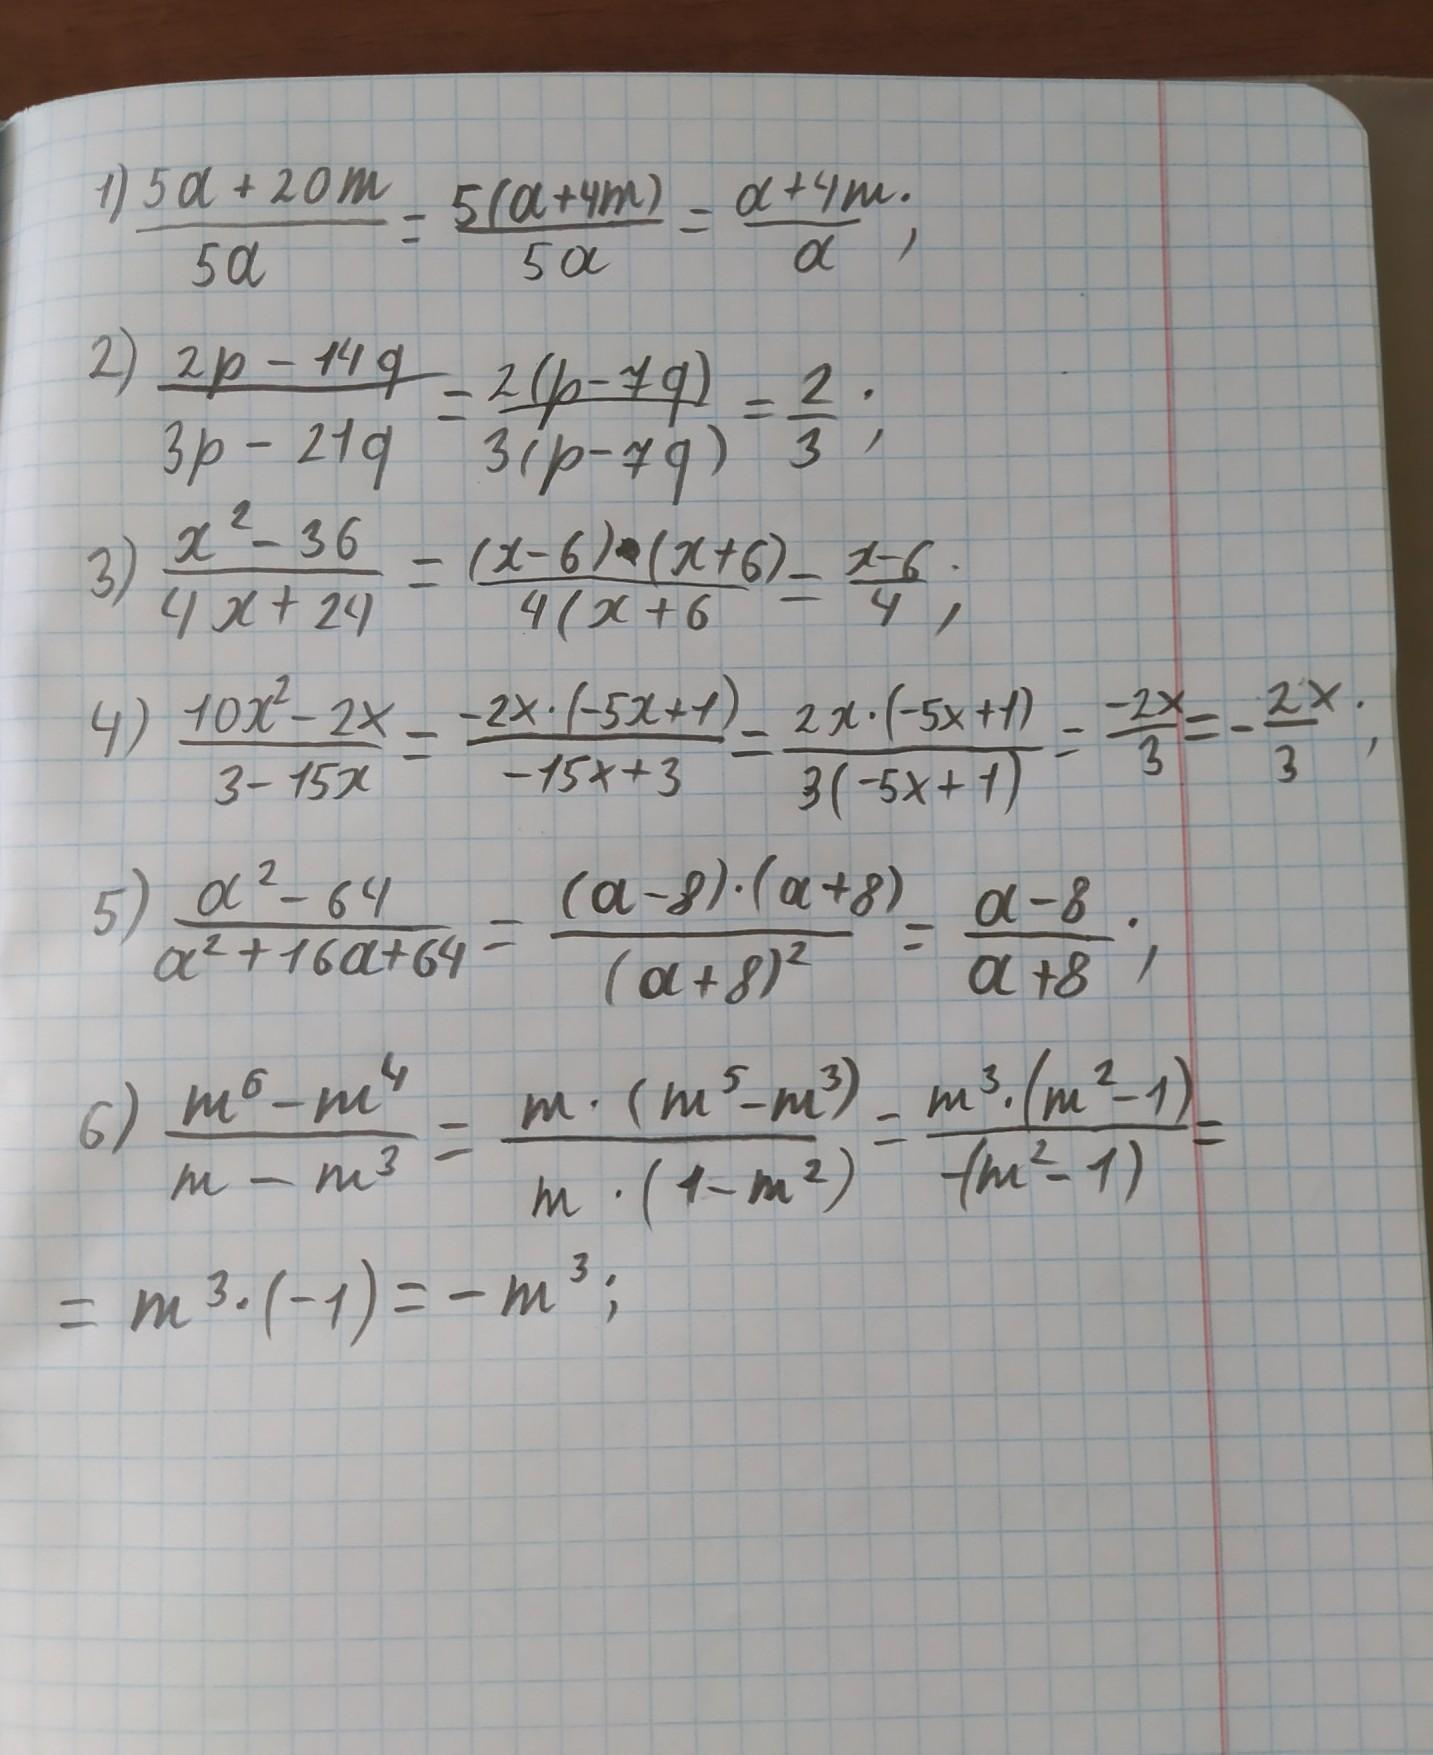 1) (5a + 20m)/(5a) = (5(a+4m))/(5a) = (a+4m)/a;
2) (2p − 14q)/(3p − 21q) = (2(p−7q))/(3(p−7q)) = 2/3;
3) (x² − 36)/(4x + 24) = ((x−6)·(x+6))/(4(x+6) = (x−6)/4;
4) (10x² − 2x)/(3 − 15x) = (−2x·(−5x+1))/(−15x+3) = (2x·(−5x+1))/(3(−5x+1)) = (−2x)/3 = −(2x)/3;
5) (a² − 64)/(a² + 16a + 64) = ((a−8)·(a+8))/((a+8)²) = (a−8)/(a+8);
6) (m⁶ − m⁴)/(m − m³) = (m·(m⁵−m³))/(m·(1−m²)) = (m³·(m²−1))/(−(m²−1)) =
= m³·(−1) = −m³;